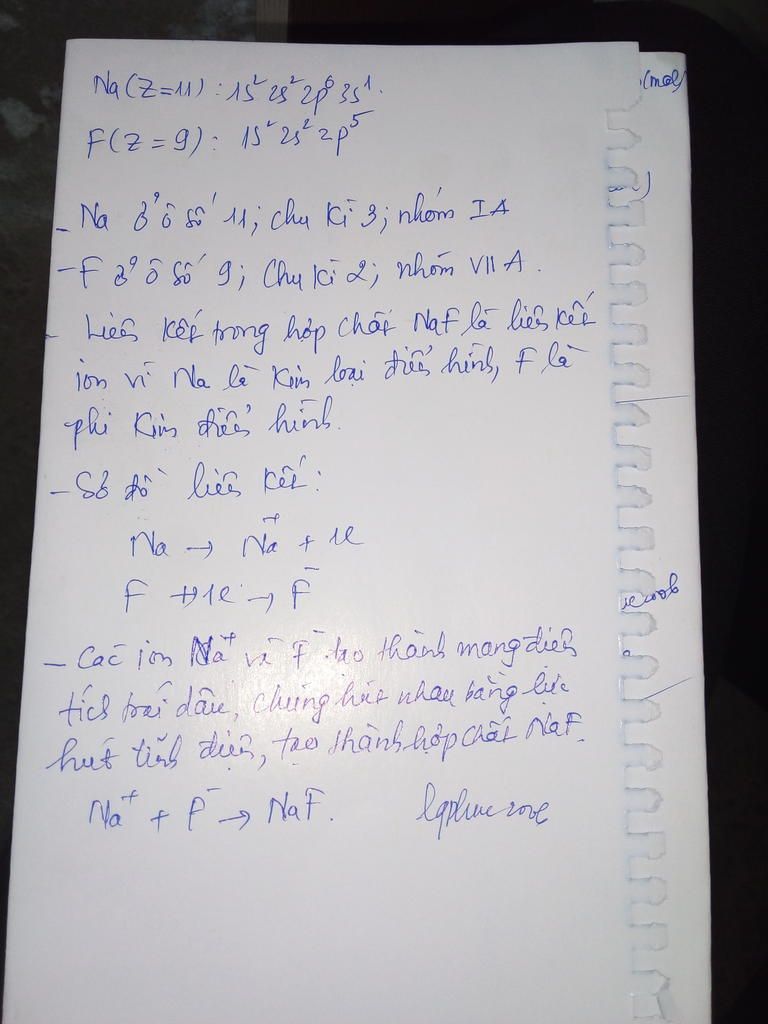 Na (Z=11) : 1s² 2s² 2p⁶ 3s¹.
F (Z = 9) : 1s² 2s² 2p⁵
(mol)
- Na ở ô số 11; chu kì 3; nhóm IA
- F ở ô số 9; chu kì 2; nhóm VII A.
- Liên kết trong hợp chất NaF là liên kết
ion vì Na là kim loại điển hình, F là
phi kim điển hình.
- Sơ đồ liên kết:
Na → Na⁺ + 1e
F + 1e → F⁻
- Các ion Na⁺ và F⁻ tạo thành mang điện
tích trái dấu, chúng hút nhau bằng lực
hút tĩnh điện, tạo thành hợp chất NaF.
Na⁺ + F⁻ → NaF.